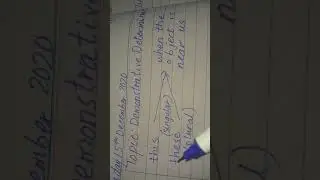 ember 2020
emonstrative
day 15th December 2020
Topic: Demonstrative Determin
this
(singular)
these
(plural)
when the
object is
near us